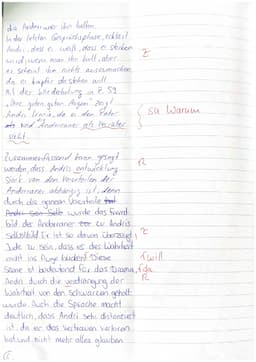 die Andorraner ihn hatten.
In der letzten Gesprächsphase, erklärt
Andri, dass er weiß, dass er sterben
wird, wenn man ihn holt, aber
er scheint ihm nichts auszumachen
da er tapfer da stehen will
Mit der Wiederholung in Z. 59
„Ihre guten, guten Augen" zeigt
Andri ironie, da er den Pater
und Andorraner als Verräter
sieht.
Z
su Warum
Zusammenfassend kann gesagt
werden, dass Andris entwicklung
Stark von den Vorurteilen der
Andorraner abhängig ist, denn
durch die ganzen Vorurteile
wurde das Fremd
bild der Andorraner zu Andris
Selbstbild. Er ist so davon überzeugt
Jude zu sein, dass es der Wahrheit
nicht ins Auge blicken Diese
Szene ist bedeutend für das Drama, da
Andri durch die
Wahrheit von den Schwarzen geholt
wurde. Auch die Sprache macht
deutlich, dass Andri sehr distanziert
ist, da er das Vertrauen verloren
hat und nicht mehr alles glauben
R
Z
will
R